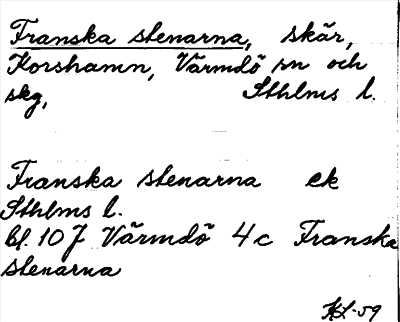 Franska stenarna, skär,
Korshamn, Värmdö sn och
skg, Sthlms l.
Franska stenarna ek
Sthlms l.
bl. 10 J Värmdö 4c Franska
stenarna
KL-59